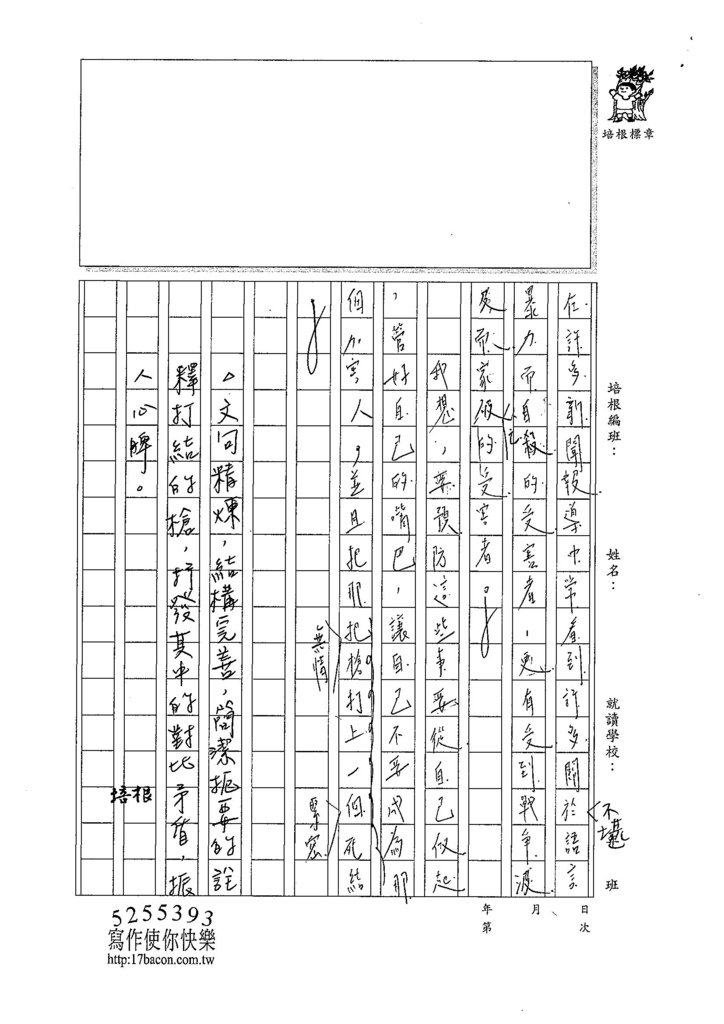 培根標章
培根編班：
姓名：
就讀學校：
班
年
月
日
第
次
在許多新聞報導中常看到許多關於語言
不堪
暴力而自殺的受害者，更有受到戰爭波
及而家破的受害者。
亡
我想，要預防這些事要從自己做起
，管好自己的嘴巴，讓自己不要成為那
個加害人，並且把那把槍打上一個死結
無情
緊密
△文句精煉，結構完善，簡潔扼要的詮
釋打結的槍，抒發其中的對比矛盾，振
人心脾。
培根
5255393
寫作使你快樂
http:17bacon.com.tw